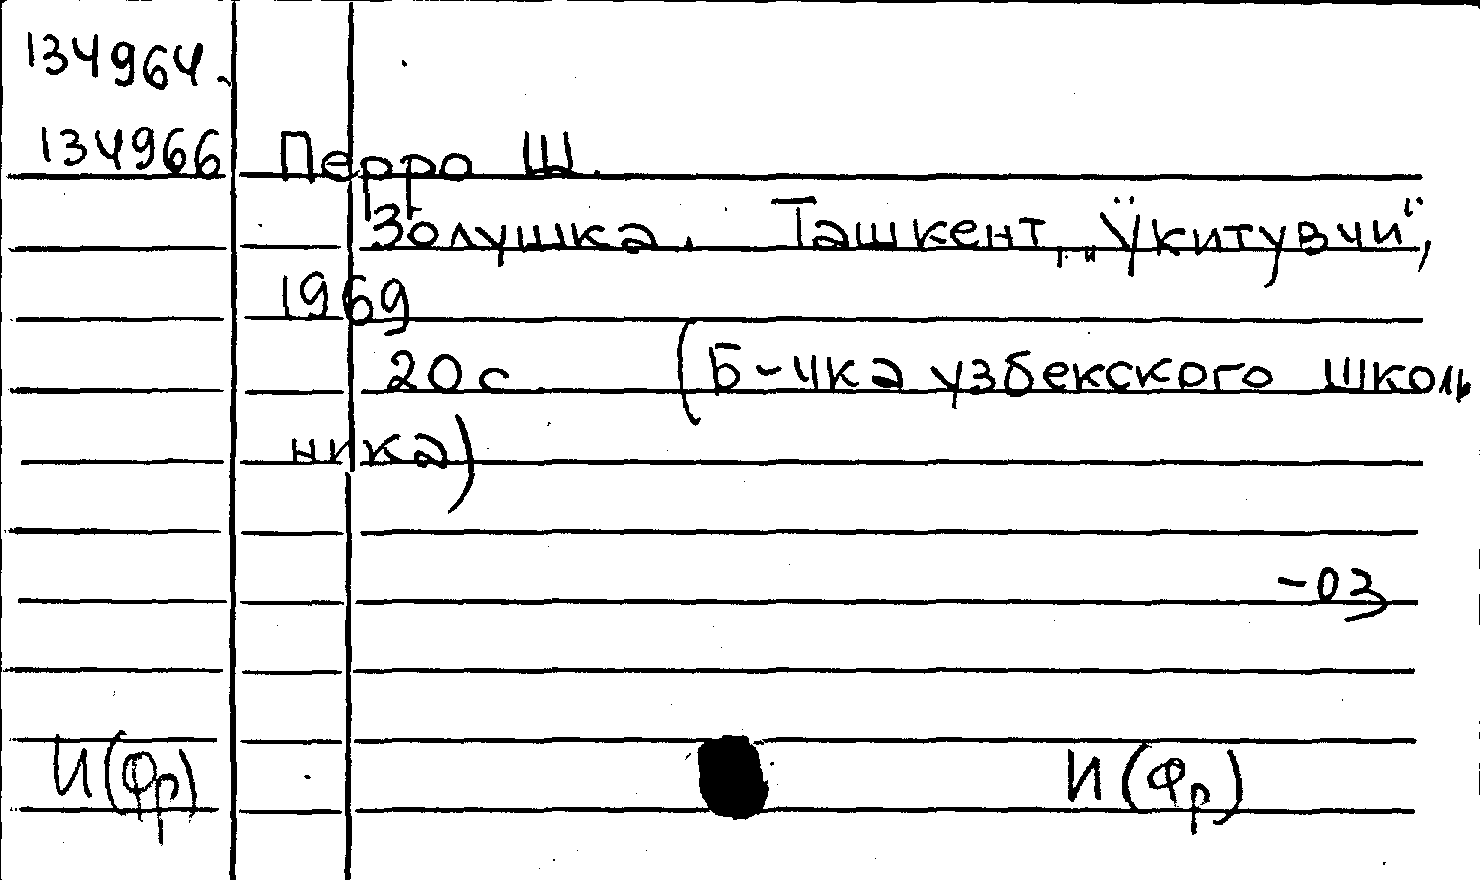 134964.
134966 Перро Ш.
Золушка. Ташкент, „Ўкитувчи“,
1969
20 с (Б-чка узбекского школь
ника)
-03
И(Фр) И(Фр)